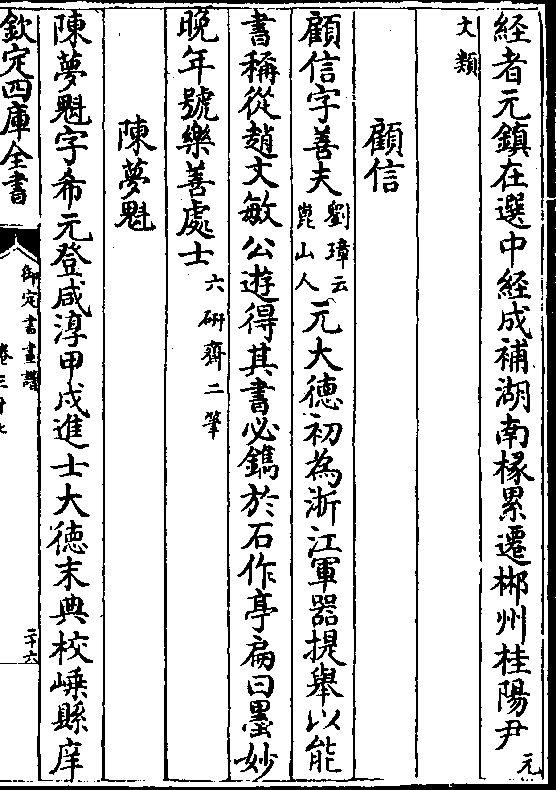 経者元鎮在選中経成補湖南椽累遷郴州桂陽尹元
文類
顧信
顧信字善夫劉璋云崑山人元大徳初為浙江軍器提舉以能
書稱從趙文敏公遊得其書必鐫於石作亭扁曰墨妙
晚年號樂善處士六研齋二筆
陳夢魁
陳夢魁字希元登咸淳甲戌進士大徳末典校嵊縣庠
欽定四庫全書
御定書畫譜
卷三十七
二十六